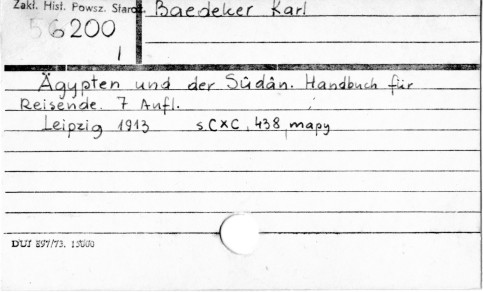 Zakł. Hist. Powsz. Staroż. Baedeker Karl
56200
1
Ägypten und der Sûdân. Handbuch für
Reisende. 7 Aufl.
Leipzig 1913 s. CXC, 438, mapy
DUJ 897/73. 15000